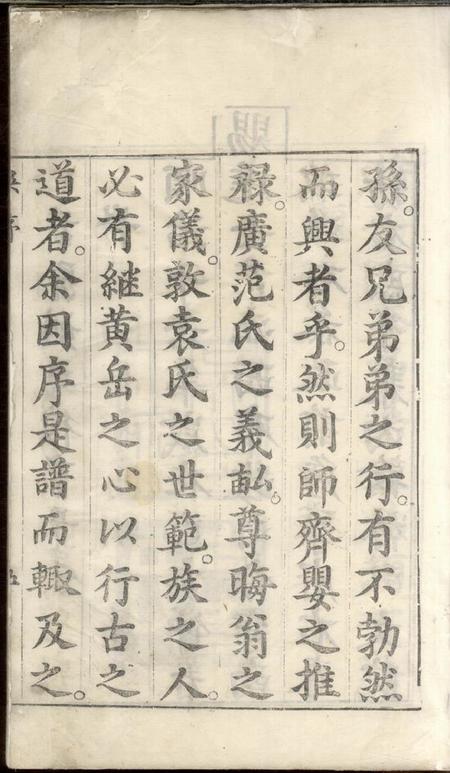 孫。友兄弟弟之行。有不勃然
而興者乎。然則師齊嬰之推
祿。廣范氏之義畝。尊晦翁之
家儀。敦袁氏之世範。族之人。
必有継黄岳之心以行古之
道者。余因序是譜而輙及之。